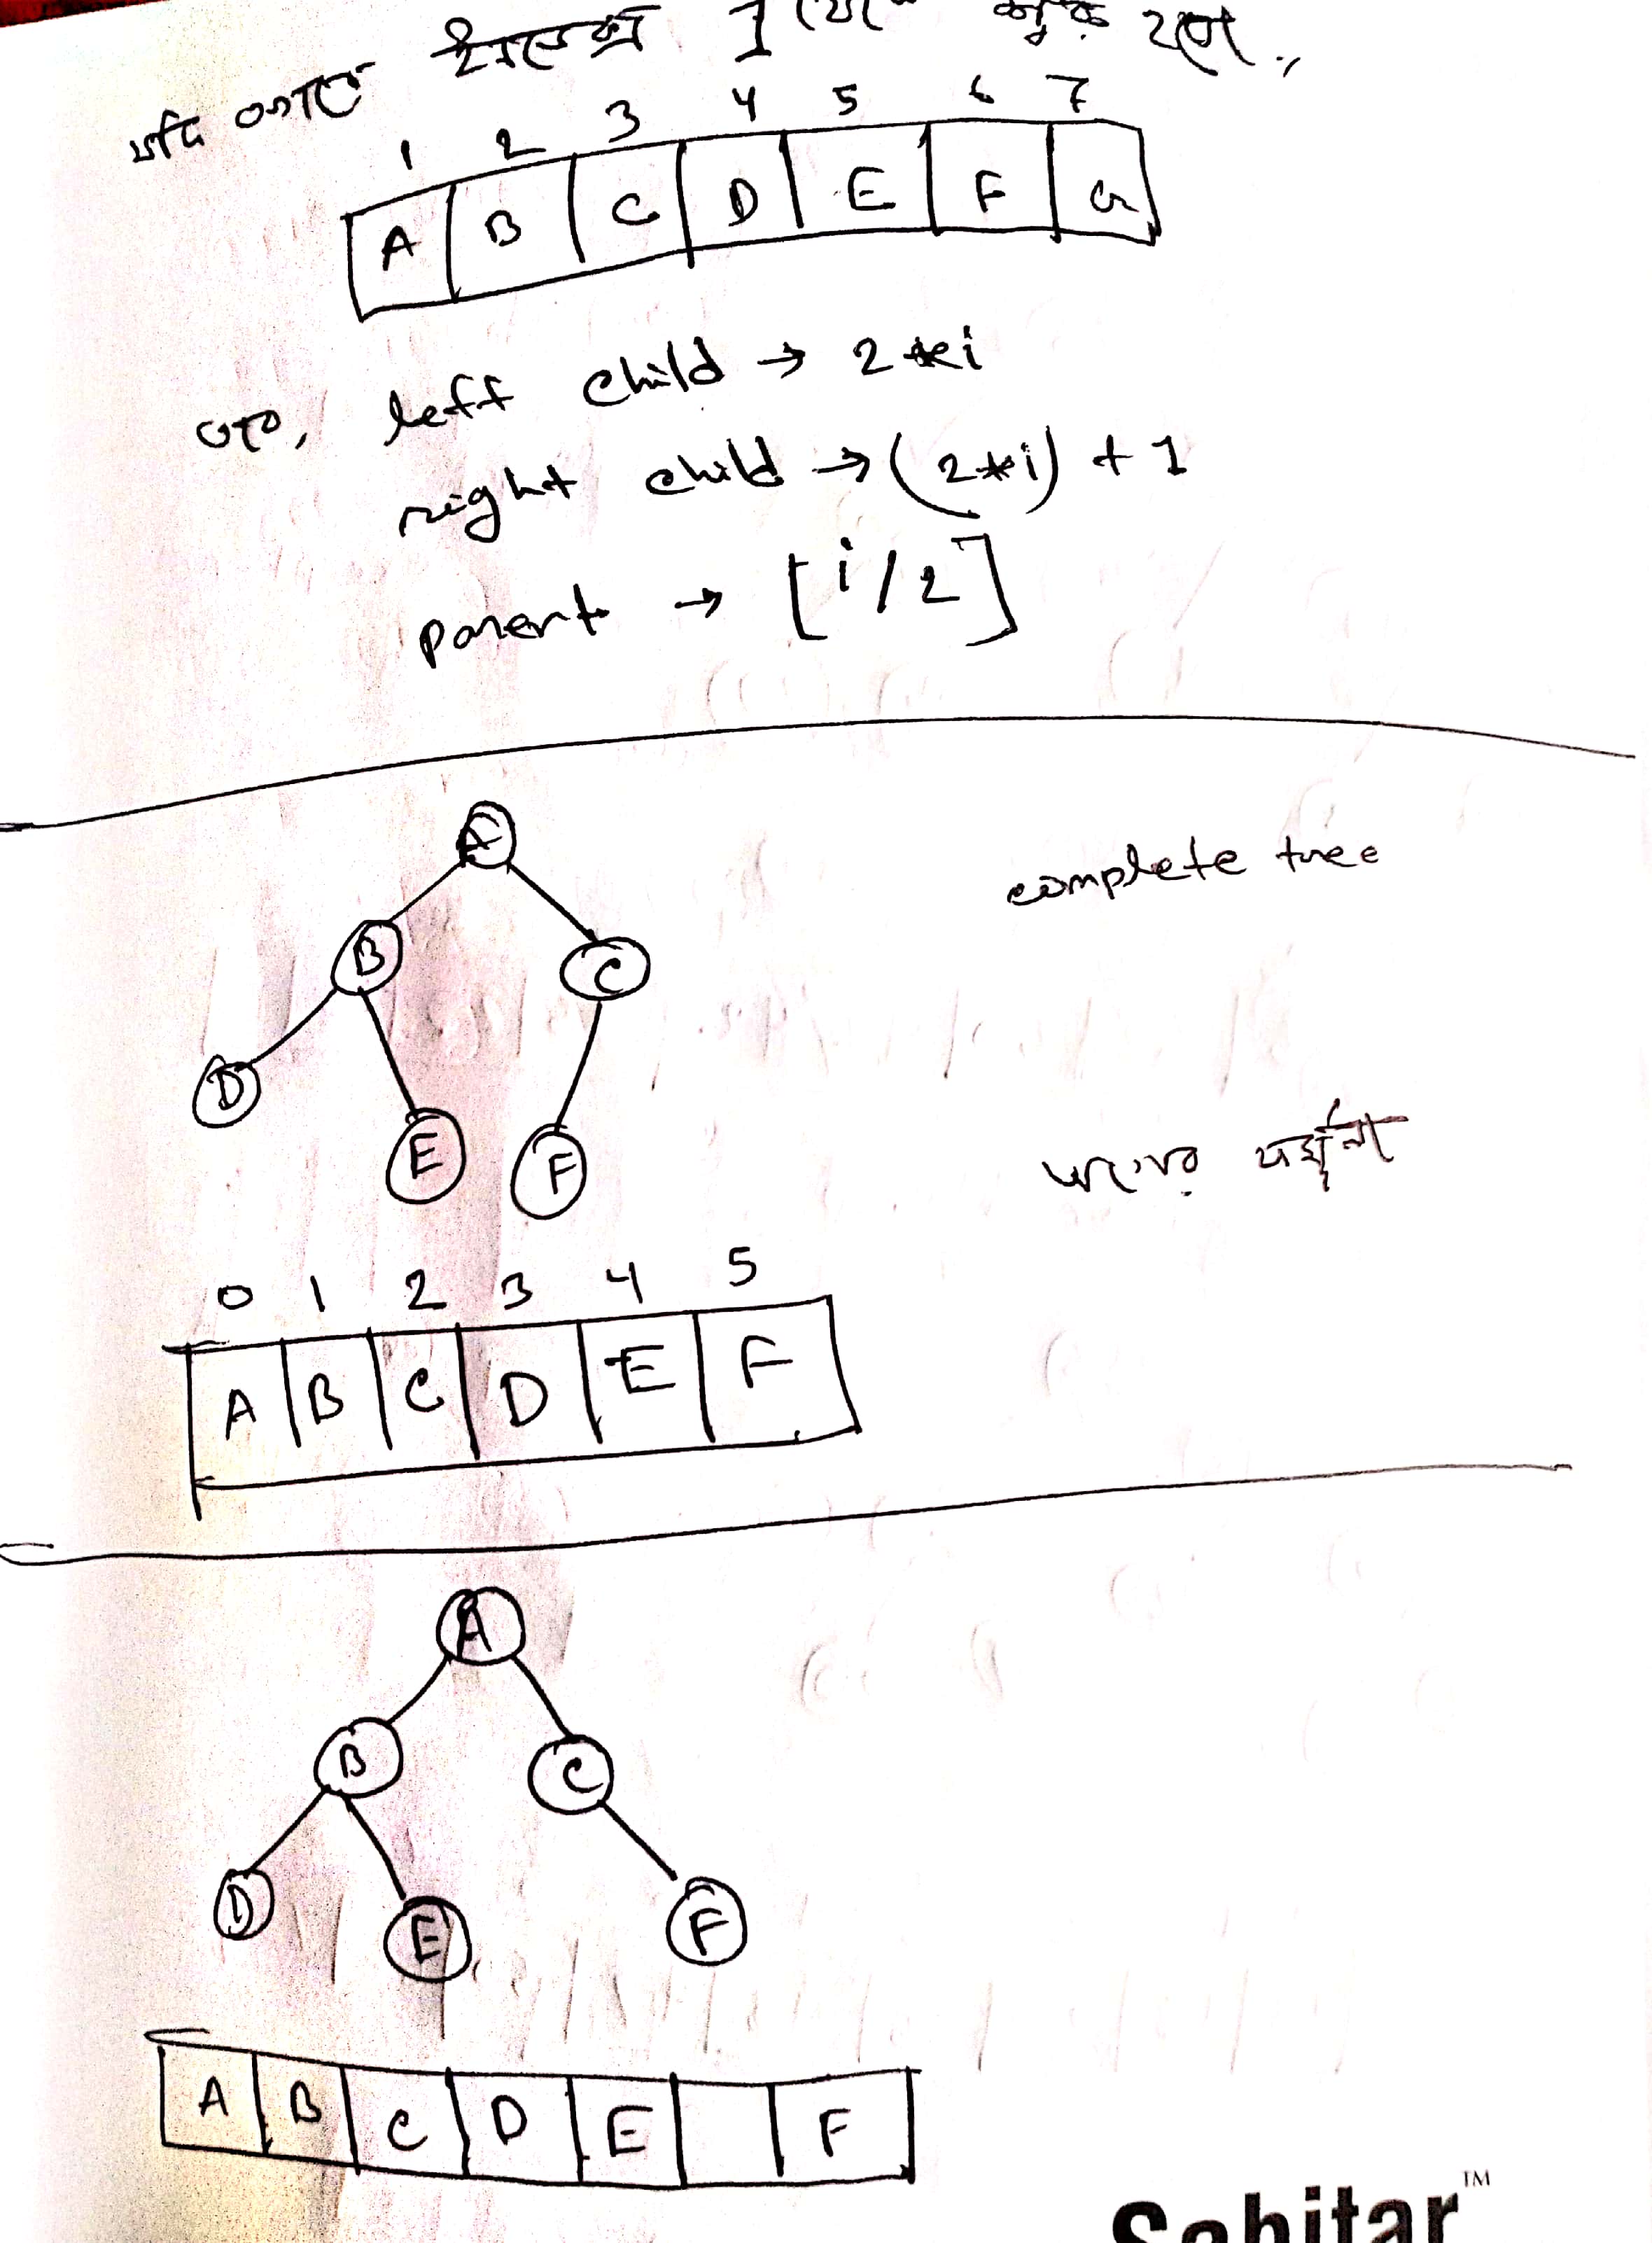 যদি ইনডেক্স 1 থেকে শুরু হয়,
1 2 3 4 5 6 7
A B C D E F G
left child → 2*i
right child → (2*i) + 1
parent → [i/2]
A
complete tree
B C
D E F
0 1 2 3 4 5
A B C D E F
A
B C
D E F
A B C D E F
Sabitar™